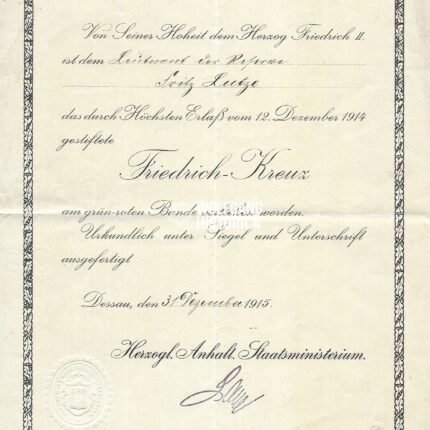 Von Seiner Hoheit dem Herzog Friedrich II.
ist dem Leutnant der Reserve
Fritz Lutze
das durch Höchsten Erlaß vom 12. Dezember 1914
gestiftete
Friedrich-Kreuz
am grün-roten Bande verliehen worden.
Urkundlich unter Siegel und Unterschrift
ausgefertigt
Dessau, den 31 Dezember 1915.
Herzogl. Anhalt. Staatsministerium.